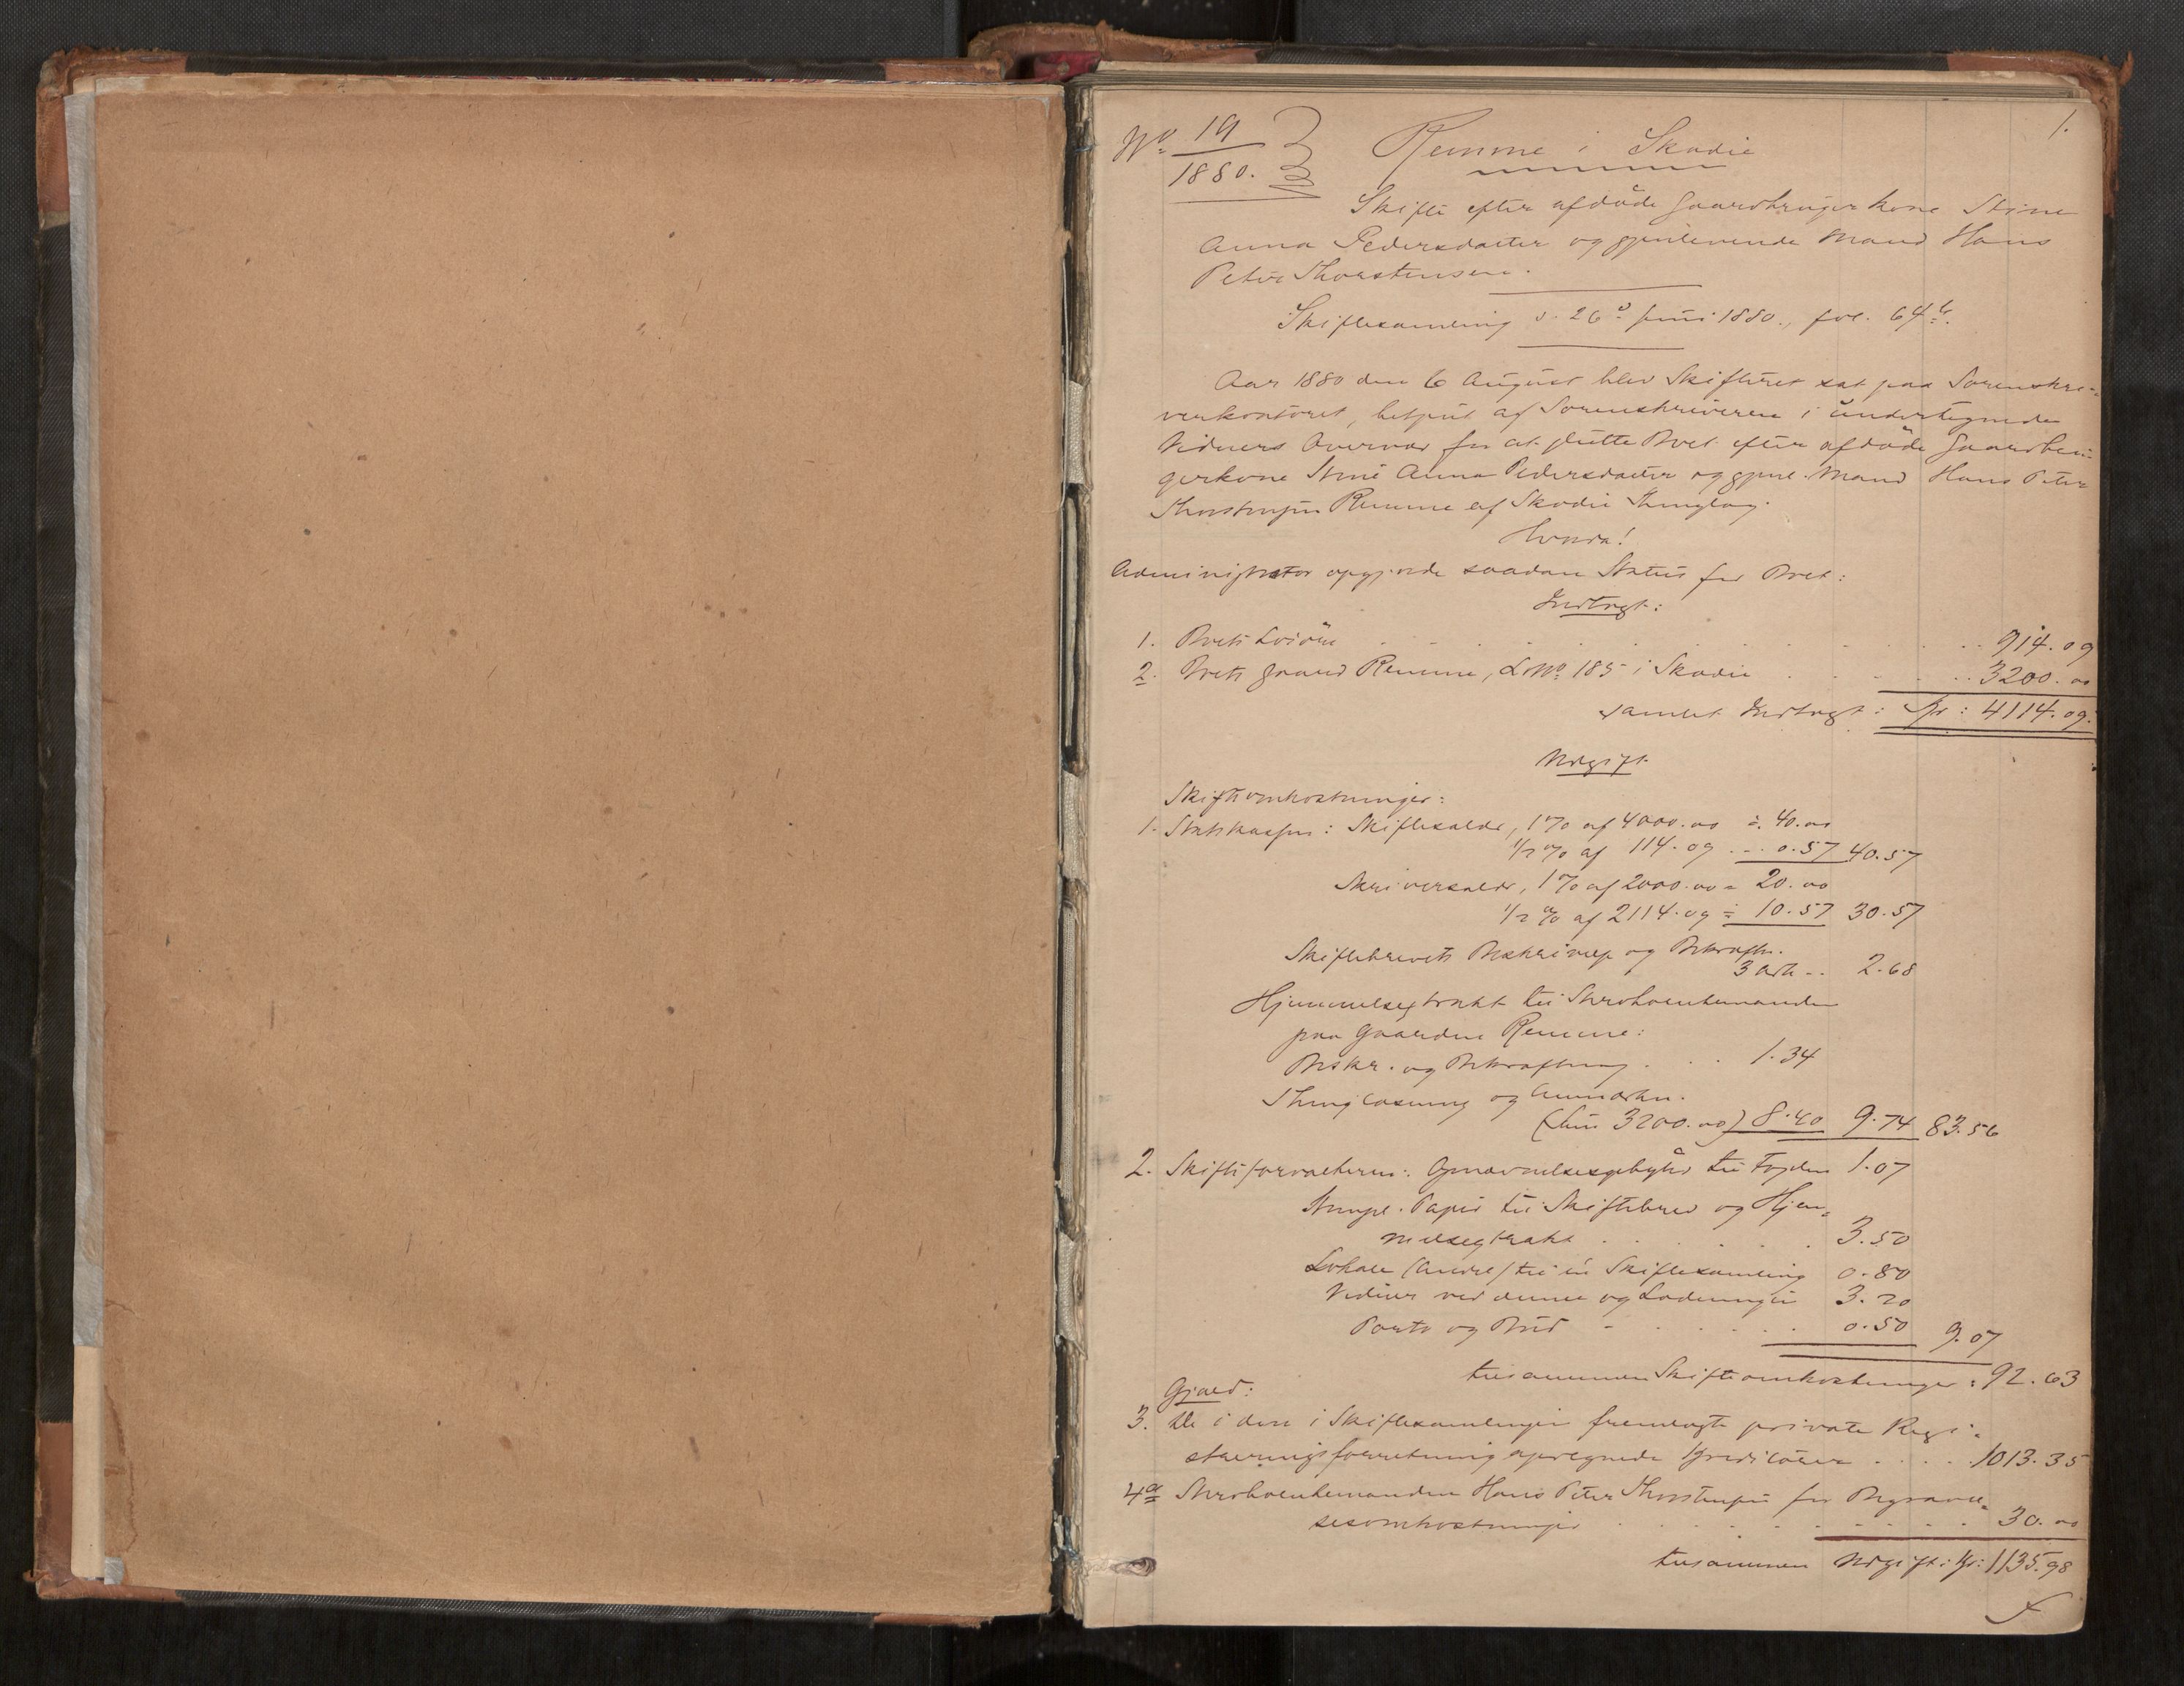 1.
No 19
1880.
Remme i Skodje
Skifte efter afdöde Gaardbrugerkone Stine
Anna Pedersdatter og gjenlevende Mand Hans
Peter Thorstensen.
Skiftesamling d. 26d Juni 1880., fol. 64b.
Aar 1880 den 6 August blev Skifteret sat paa Sorenskri-
verkontoret, betjent af Sorenskriveren i undertegnede
Vidners Overvær for at slutte Boet efter afdöde Gaardbru-
gerkone Stine Anna Pedersdatter og gjenl. Mand Hans Peter
Thorstensen Remme af Skodje Thinglag.
Hvorda!
Administrator opgjorde saadan Status for Boet:
Indtægt:
1. Boets Lösöre 914.09
2. Boets Gaard Remme, L No 185 i Skodje 3200.00
samlet Indtægt: Kr: 4114.09.
Udgift
Skifteomkostninger:
1. Statskassen: Skiftesalær, 1% af 4000.00 = 40.00
1/2% af 114.09 - 0.57 40.57
Skriversalær, 1% af 2000.00 = 20.00
1/2% af 2114.09 = 10.57 30.57
Skiftebrevets Beskrivelse og Bekræftn.
3 Ark 2.68
Hjemmelsextrakt til Sterboenkemanden
paa Gaarden Remme:
Beskr. og Bekræftning 1.34
Thinglæsning og Anmærkn.
(Sum 3200.00) 8.40 9.74 83.56
2. Skifteforvalteren: Opnævnelsesgebyhr til Fogden 1.07
Stempl. Papir til Skiftebrev og Hjem-
melsextrakt 3.50
Lokale (Andel) til en Skiftesamling 0.80
Vidner ved denne og Slutningen 3.20
Porto og Bud 0.50 9.07
tilsammen Skifteomkostninger: 92.63
Gjæld:
3. De i den i Skiftesamlingen fremlagte private Regi-
streringsforretning opregnede Kreditorer 1013.35
4a Sterboenkemanden Hans Peter Thorstensen for Begravel-
sesomkostninger 30.00
tilsammen Udgift: Kr: 1135.98